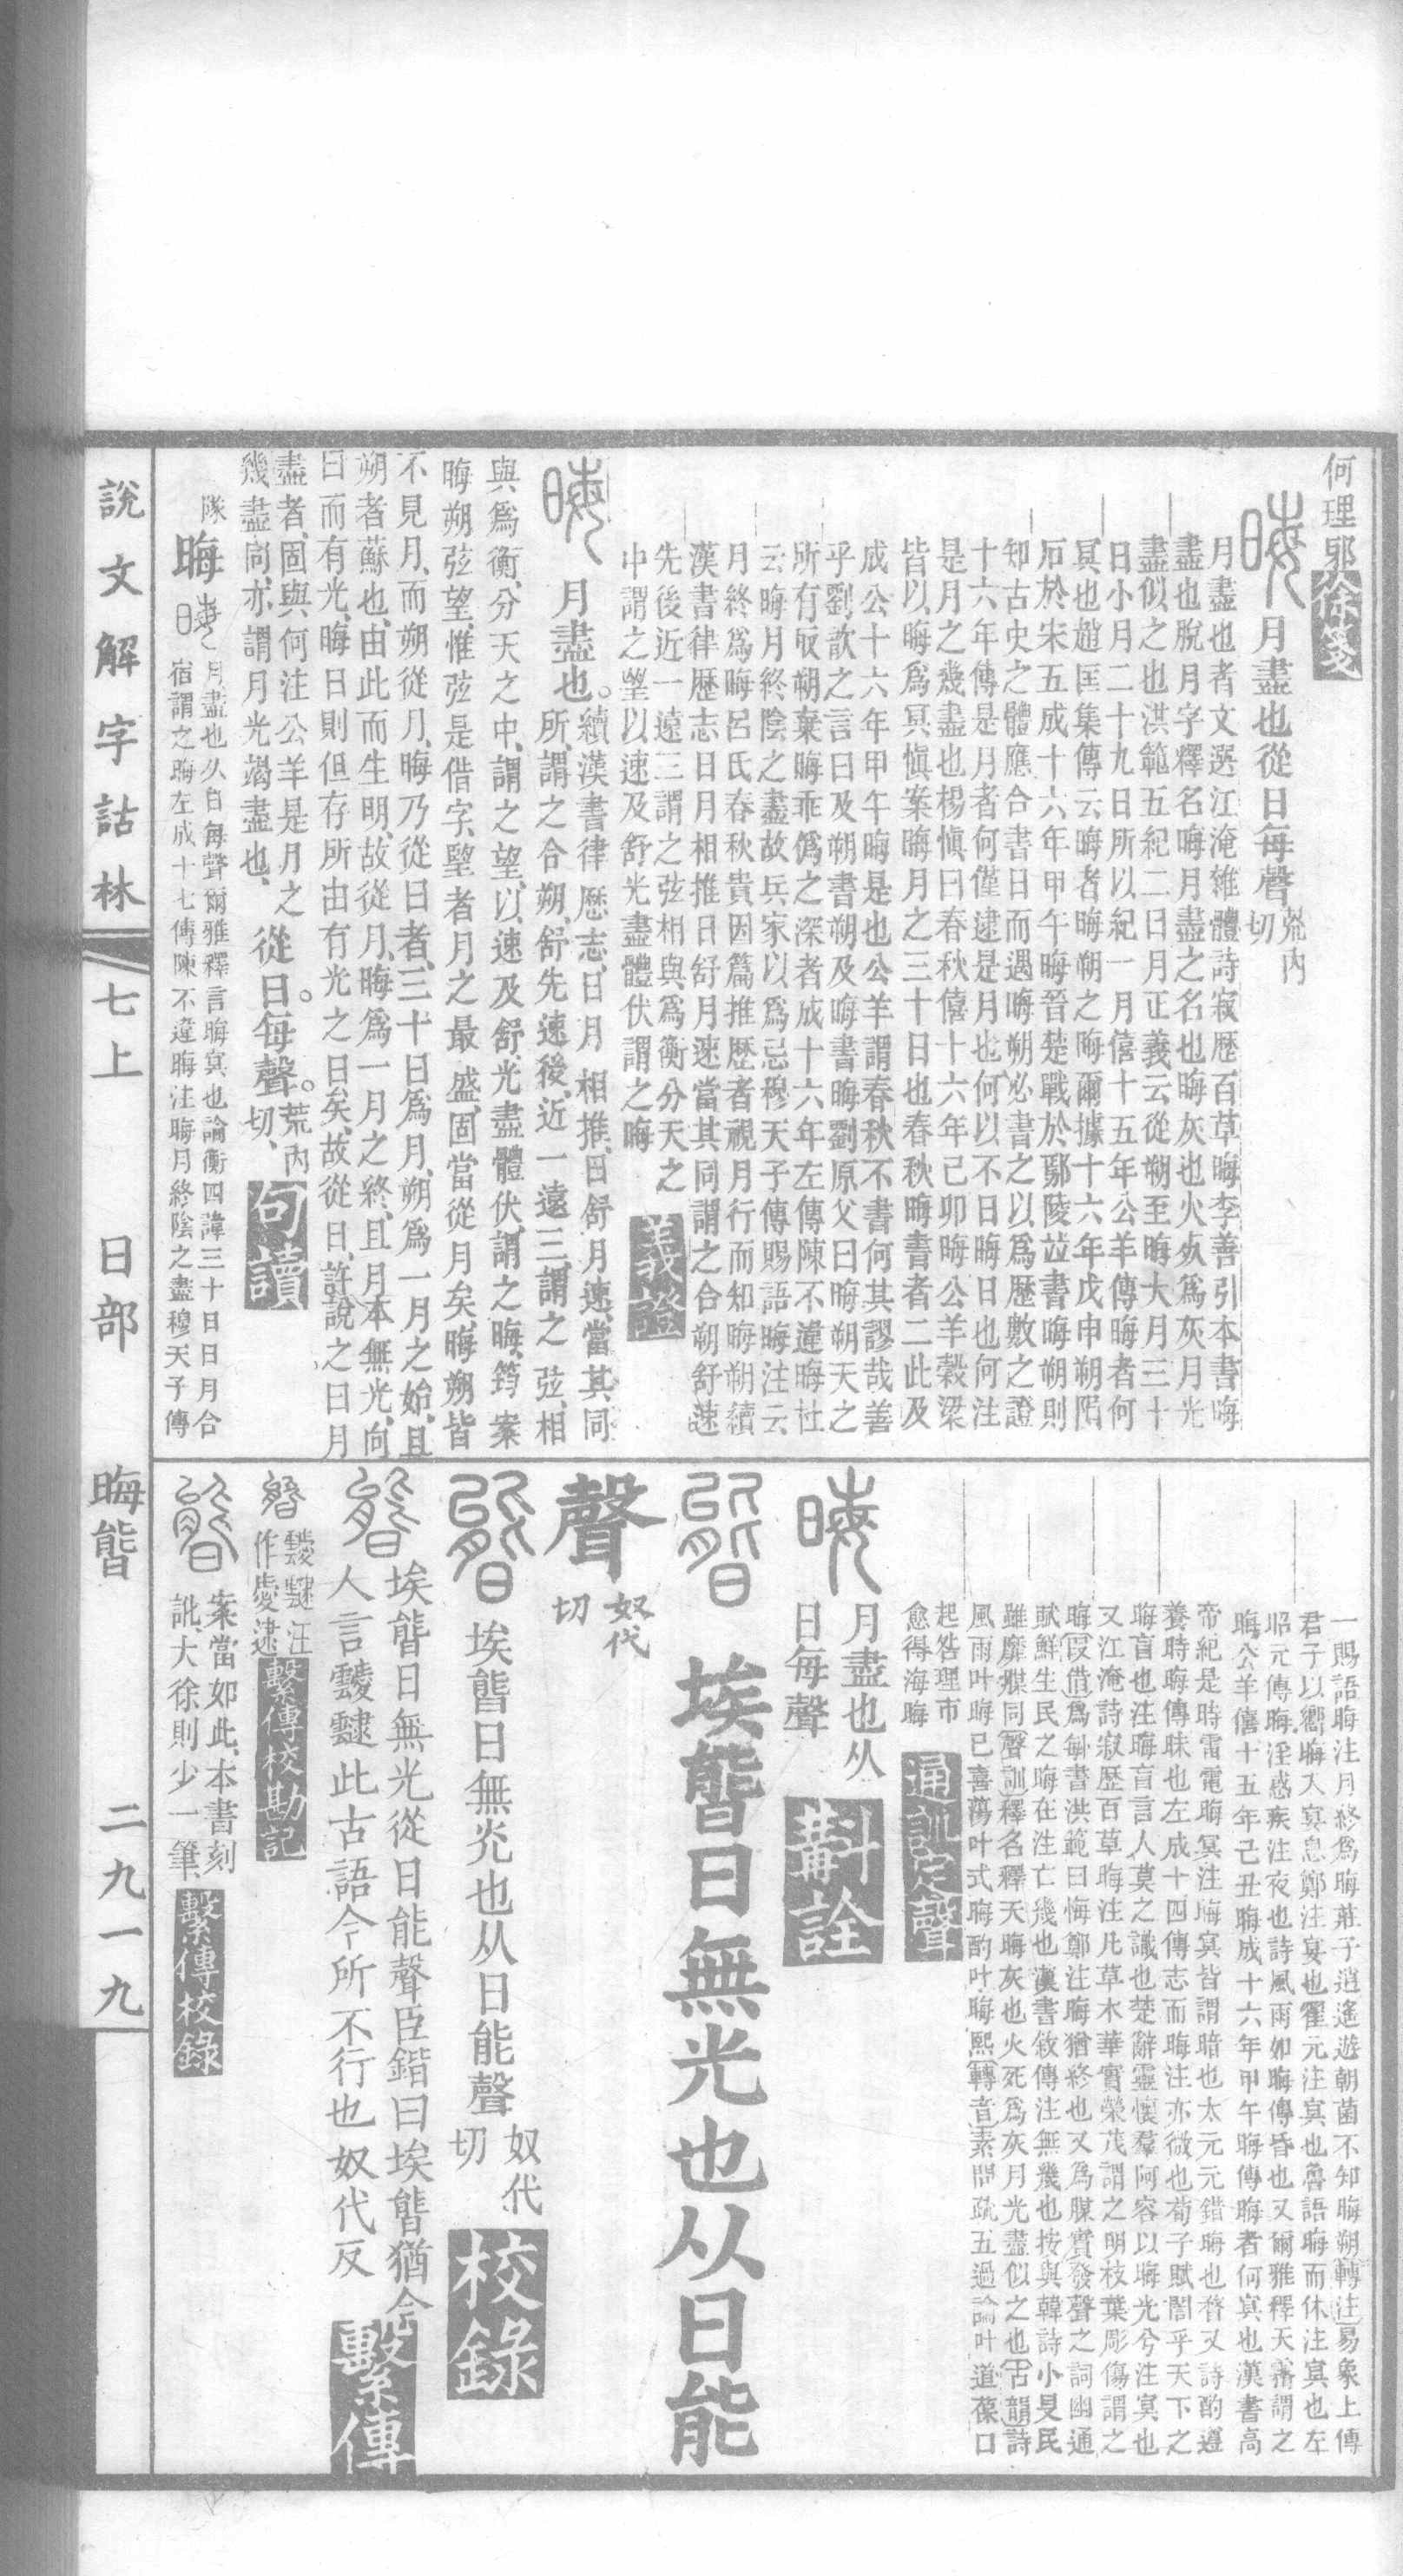 何理郭徐箋
晦 月盡也從日每聲荒內切
月盡也者文選江淹雜體詩寂歴百草晦李善引本書晦
盡也脫月字釋名晦月盡之名也晦灰也火死為灰月光
盡似之也洪範五紀二曰月正義云從朔至晦大月三十
日小月二十九日所以紀一月僖十五年公羊傳晦者何
冥也趙匡集傳云晦者晦朔之晦爾據十六年戊申朔隕
石於宋五成十六年甲午晦晉楚戰於鄢陵竝書晦朔則
知古史之體應合書日而遇晦朔必書之以為歴數之證
十六年傳是月者何僅逮是月也何以不日晦日也何注
是月之幾盡也楊愼曰春秋僖十六年己卯晦公羊穀梁
皆以晦為冥愼案晦月之三十日也春秋晦書者二此及
成公十六年甲午晦是也公羊謂春秋不書何其謬哉善
乎劉歆之言曰及朔書朔及晦書晦劉原父曰晦朔天之
所有取朔棄晦乖偽之深者成十六年左傳陳不違晦杜
云晦月終陰之盡故兵家以為忌穆天子傳賜語晦注云
月終為晦呂氏春秋貴因篇推歴者視月行而知晦朔續
漢書律歴志日月相推日舒月速當其同謂之合朔舒速
先後近一遠三謂之弦相與為衡分天之
中謂之望以速及舒光盡體伏謂之晦 義證
晦 月盡也。續漢書律厯志、日月相推、日舒月速、當其同
所、謂之合朔、舒先速後、近一遠三、謂之弦、相
與為衡、分天之中、謂之望、以速及舒、光盡體伏、謂之晦、筠案
晦朔弦望、惟弦是借字、朢者月之最盛、固當從月矣、晦朔皆
不見月、而朔從月、晦乃從日者、三十日為月、朔為一月之始、且
朔者蘇也、由此而生明、故從月、晦為一月之終、且月本無光、向
日而有光、晦日則但存所由有光之日矣、故從日、許說之曰月
盡者、固與何注公羊是月之
幾盡同、亦謂月光竭盡也、 從日。每聲。荒內切、 句讀
隊 晦 晦 月盡也从日每聲爾雅釋言晦冥也論衡四諱三十日日月合
宿謂之晦左成十七傳陳不違晦注晦月終陰之盡穆天子傳
一賜語晦注月終為晦莊子逍遙遊朝菌不知晦朔轉注易象上傳
君子以嚮晦入冥息鄭注宴也翟元注冥也魯語晦而休注冥也左
昭元傳晦淫惑疾注夜也詩風雨如晦傳昏也又爾雅釋天霧謂之
晦公羊僖十五年己丑晦成十六年甲午晦傳晦者何冥也漢書高
帝紀是時雷電晦冥注晦冥皆謂暗也太元元錯晦也瞀又詩酌遵
養時晦傳昧也左成十四傳志而晦注亦微也荀子賦闇乎天下之
晦盲也注晦盲言人莫之識也楚辭靈懷羣阿容以晦光兮注冥也
又江淹詩寂歴百草晦注凡草木華實榮茂謂之明枝葉彫傷謂之
晦叚借為每書洪範曰悔鄭注晦猶終也又為腜實發聲之詞幽通
賦鮮生民之晦在注亡幾也漢書敘傳注無幾也按與韓詩小旻民
雖靡腜同聲訓釋名釋天晦灰也火死為灰月光盡似之也古韻詩
風雨叶晦已喜蕩叶式晦酌叶晦熙轉音素問疏五過論叶道葆口
起咎理市
愈得海晦 通訓定聲
晦 月盡也从
日每聲 斠詮
㫰 埃㫰日無光也从日能
聲奴代切
㫰 埃㫰日無光也从日能聲奴代切 校錄
㫰 埃㫰日無光從日能聲臣鍇曰埃㫰猶今
人言靉靆此古語今所不行也奴代反 繫傳
㫰 靉靆汪
作㤅逮 繫傳校勘記
㫰 案當如此、本書刻
訛、大徐則少一筆、 繫傳校錄
說文解字詁林 七上 日部 晦㫰 二九一九